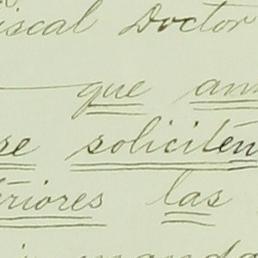 iscal Doctor
que an
re soliciten
teriores las
manda